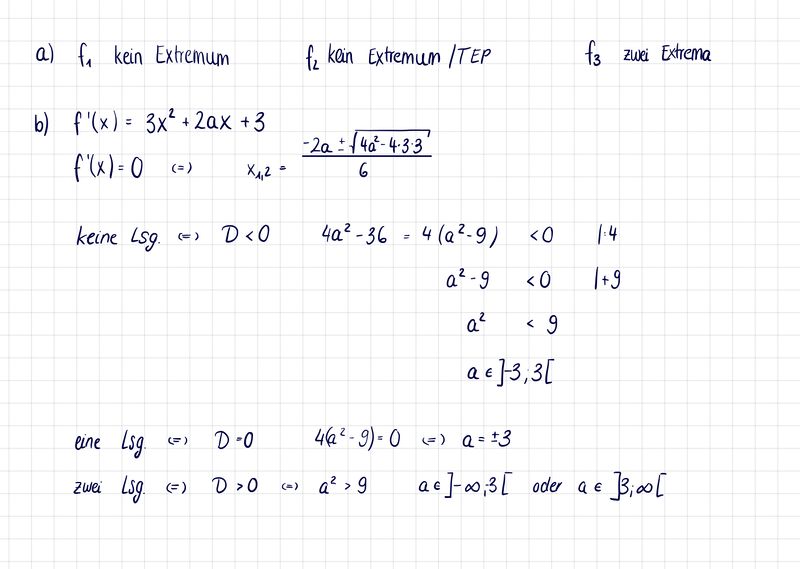 a) f₁ kein Extremum f₂ kein Extremum /TEP f₃ zwei Extrema
b) f'(x) = 3x² + 2ax + 3
f'(x) = 0 <=> x₁,₂ = (-2a ± √(4a² - 4·3·3)) / 6
keine Lsg. <=> D < 0 4a² - 36 = 4(a² - 9) < 0 |:4
a² - 9 < 0 |+9
a² < 9
a ∈ ]-3;3[
eine Lsg. <=> D = 0 4(a² - 9) = 0 <=> a = ±3
zwei Lsg. <=> D > 0 <=> a² > 9 a ∈ ]-∞;3[ oder a ∈ ]3;∞[